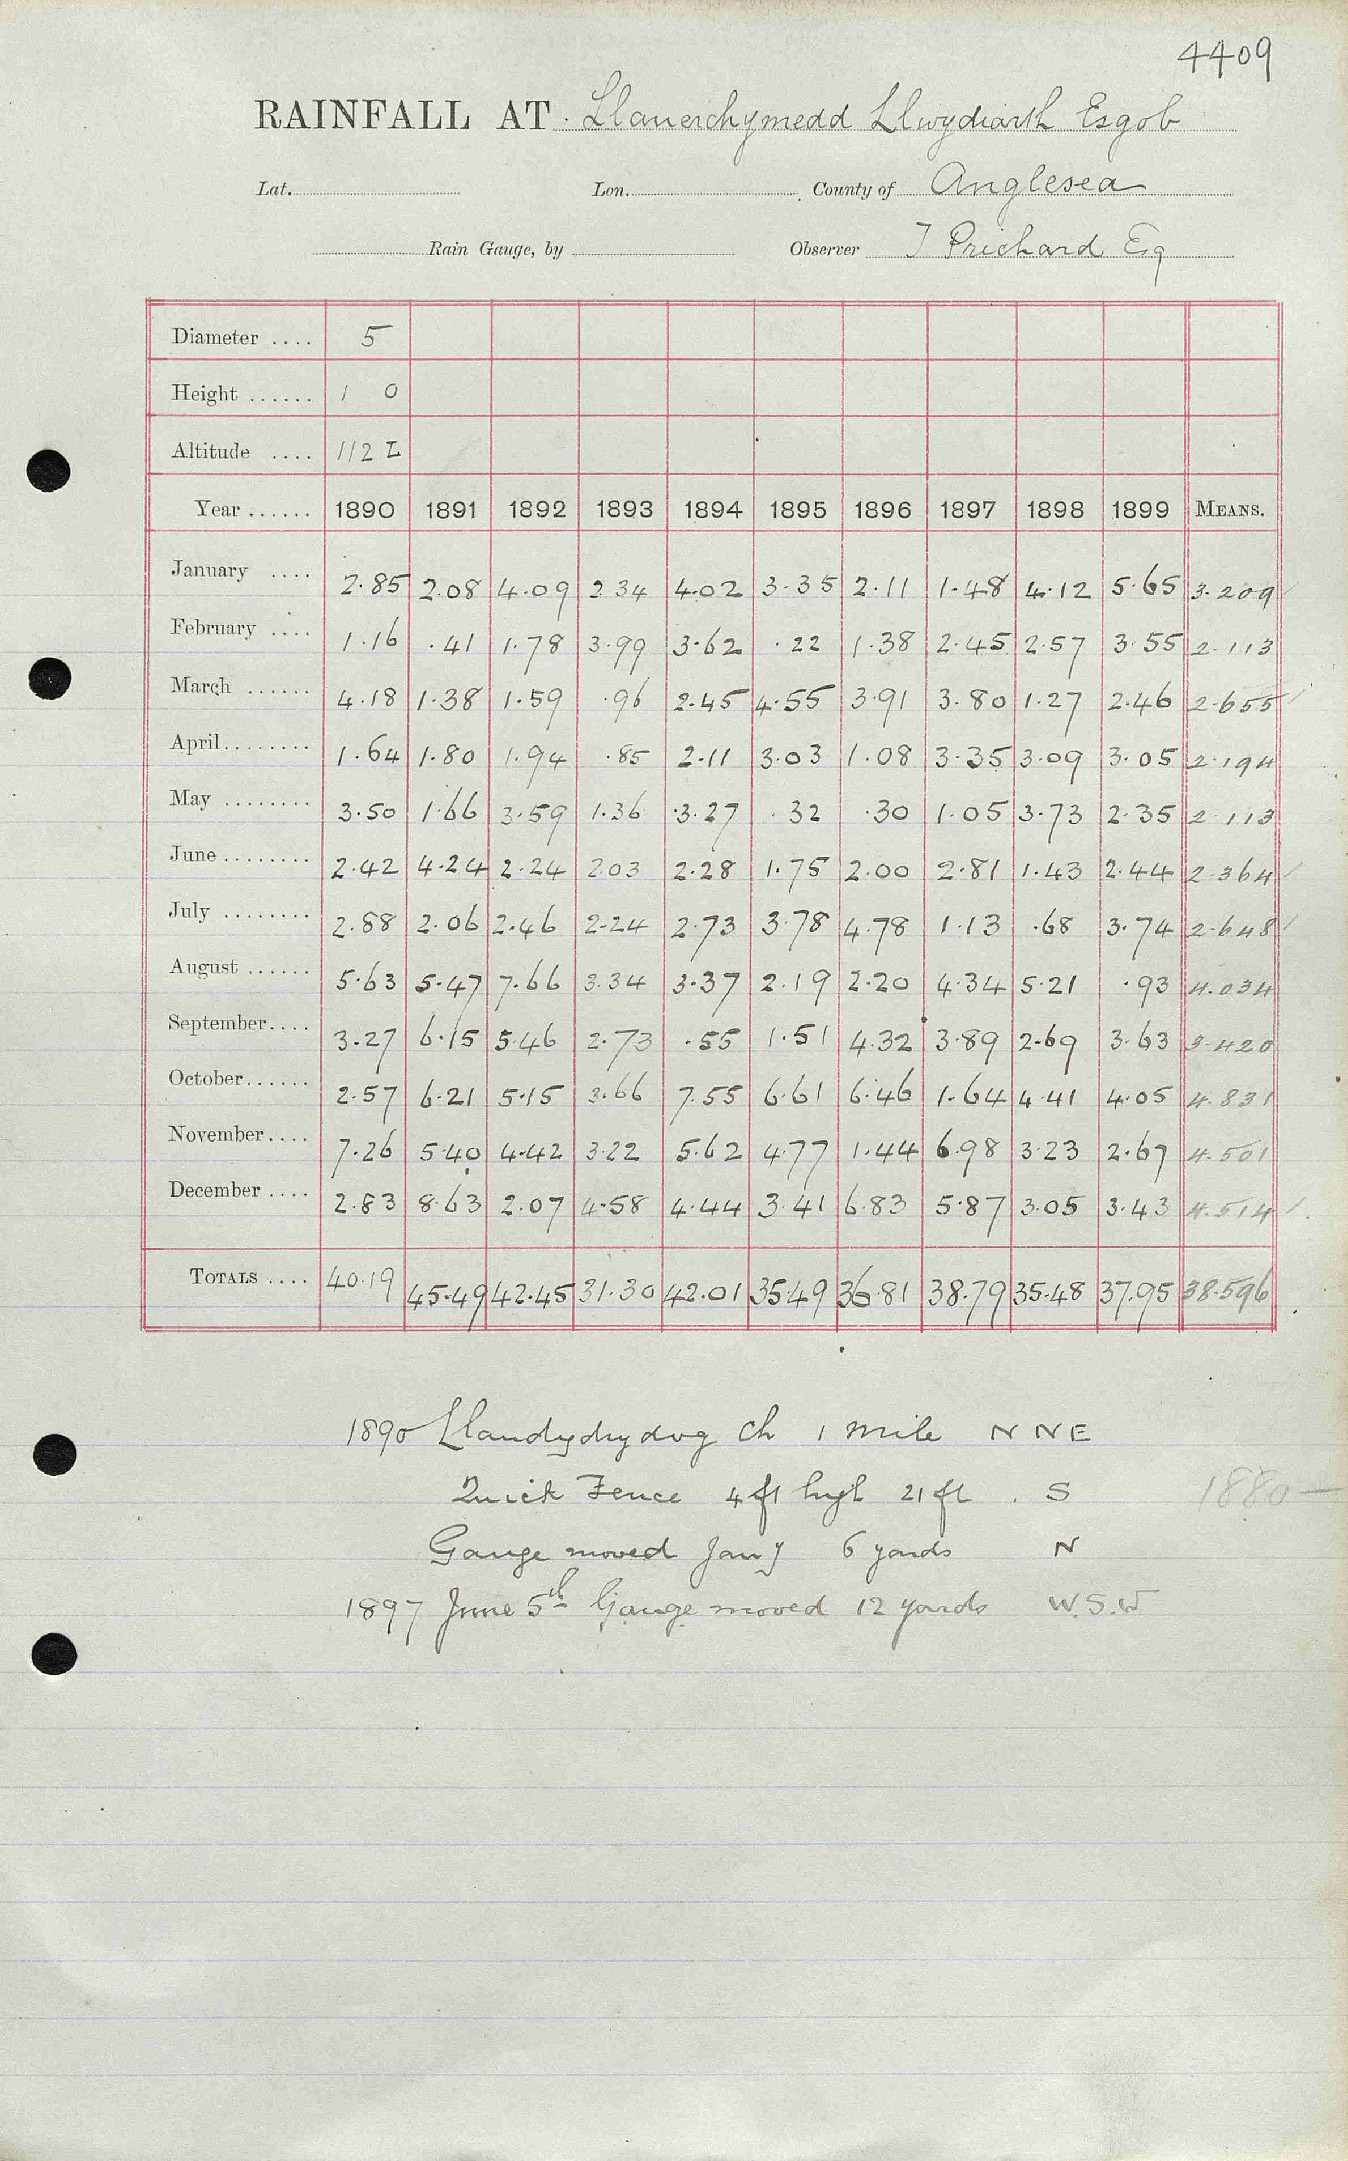 4409
RAINFALL AT Llanerchymedd Llwydiarth Esgob
Lat. Lon. County of Anglesea
Rain Gauge, by Observer T Prichard Esq
Diameter .... 5
Height ...... 1 0
Altitude .... 112 L
Year ...... 1890 1891 1892 1893 1894 1895 1896 1897 1898 1899 MEANS.
January .... 2.85 2.08 4.09 2.34 4.02 3.35 2.11 1.48 4.12 5.65 3.209
February .... 1.16 .41 1.78 3.99 3.62 .22 1.38 2.45 2.57 3.55 2.113
March ...... 4.18 1.38 1.59 .96 2.45 4.55 3.91 3.80 1.27 2.46 2.655
April........ 1.64 1.80 1.94 .85 2.11 3.03 1.08 3.35 3.09 3.05 2.194
May ........ 3.50 1.66 3.59 1.36 3.27 .32 .30 1.05 3.73 2.35 2.113
June ........ 2.42 4.24 2.24 2.03 2.28 1.75 2.00 2.81 1.43 2.44 2.364
July ........ 2.88 2.06 2.46 2.24 2.73 3.78 4.78 1.13 .68 3.74 2.648
August ...... 5.63 5.47 7.66 3.34 3.37 2.19 2.20 4.34 5.21 .93 4.034
September.... 3.27 6.15 5.46 2.73 .55 1.51 4.32 3.89 2.69 3.63 3.420
October...... 2.57 6.21 5.15 3.66 7.55 6.61 6.46 1.64 4.41 4.05 4.831
November.... 7.26 5.40 4.42 3.22 5.62 4.77 1.44 6.98 3.23 2.67 4.501
December .... 2.83 8.63 2.07 4.58 4.44 3.41 6.83 5.87 3.05 3.43 4.514
TOTALS .... 40.19 45.49 42.45 31.30 42.01 35.49 36.81 38.79 35.48 37.95 38.596
1890 Llandydrydog Ch 1 mile N N E
Quick Fence 4 ft high 21 ft . S
1880 —
Gauge moved Jany 6 yards N
1897 June 5th Gauge moved 12 yards W.S.W